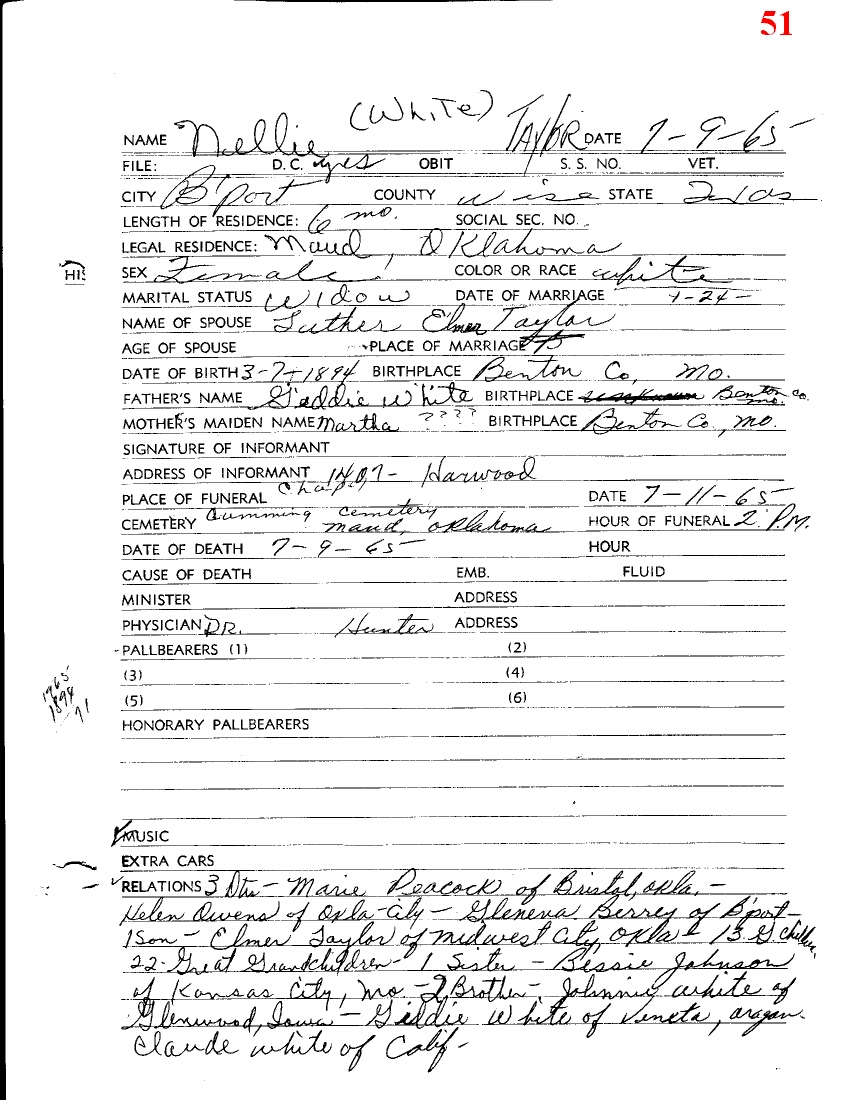 51
(White)
NAME Nellie Taylor DATE 7-9-65
FILE: D.C. yes OBIT S. S. NO. VET.
CITY B'port COUNTY Wise STATE Texas
LENGTH OF RESIDENCE: 6 mo. SOCIAL SEC. NO.
LEGAL RESIDENCE: Maud, Oklahoma
HI
SEX Female COLOR OR RACE white
MARITAL STATUS Widow DATE OF MARRIAGE 1-24-
NAME OF SPOUSE Luther Elmer Taylor
AGE OF SPOUSE PLACE OF MARRIAGE
DATE OF BIRTH 3-7-1894 BIRTHPLACE Benton Co, Mo.
FATHER'S NAME Giddie White BIRTHPLACE unknown Benton co. mo.
MOTHER'S MAIDEN NAME Martha ???? BIRTHPLACE Benton Co., Mo.
SIGNATURE OF INFORMANT
ADDRESS OF INFORMANT 1407- Harwood
PLACE OF FUNERAL Chapel DATE 7-11-65
CEMETERY Cumming cemetery maud, oklahoma HOUR OF FUNERAL 2 P.M.
DATE OF DEATH 7-9-65 HOUR
CAUSE OF DEATH EMB. FLUID
MINISTER ADDRESS
PHYSICIAN DR. Hunter ADDRESS
PALLBEARERS (1) (2)
(3) (4)
(5) (6)
1965
1894
71
HONORARY PALLBEARERS
MUSIC
EXTRA CARS
RELATIONS 3 Dtu- Marie Peacock of Bristol, okla. -
Helen Owens of Okla-City - Gleneva Berrey of B'port-
1 Son - Elmer Taylor of Midwest City, Okla - 13 G children
22-Great Grandchildren- 1 Sister - Bessie Johnson
of Kansas City, Mo. - 2 Brother - Johnnie white of
Glenwood, Iowa - Giddie White of Veneta, oragan.
Claude white of Calif-